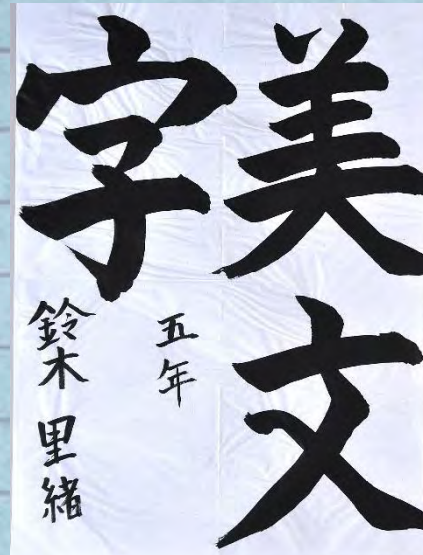 美文
字
五年
鈴木里緒